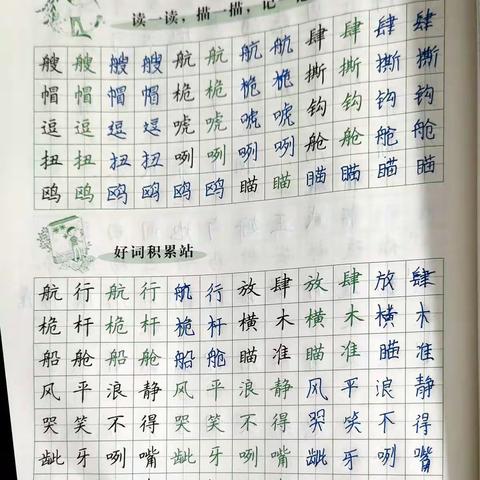 读一读,描一描,记一记
艘艘艘艘航航航航肆肆肆肆
帽帽帽帽桅桅桅桅撕撕撕撕
逗逗逗逗唬唬唬唬钩钩钩钩
扭扭扭扭咧咧咧咧舱舱舱舱
鸥鸥鸥鸥鸥鸥瞄瞄瞄瞄瞄瞄
好词积累站
航行航行航行放肆放肆放肆
桅杆桅杆桅杆横木横木横木
船舱船舱船舱瞄准瞄准瞄准
风平浪静风平浪静风平浪静
哭笑不得哭笑不得哭笑不得
龇牙咧嘴龇牙咧嘴龇牙咧嘴